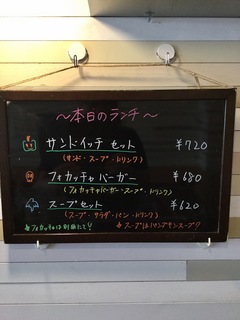 ～本日のランチ～
サンドイッチ セット ¥720
(サンド・スープ・ドリンク)
フォカッチャ バーガー ¥680
(フォカッチャバーガー・スープ・ドリンク)
スープ セット ¥620
(スープ・サラダ・パン・ドリンク)
フォカッチャは別腹にて!
スープはパンプキンスープ